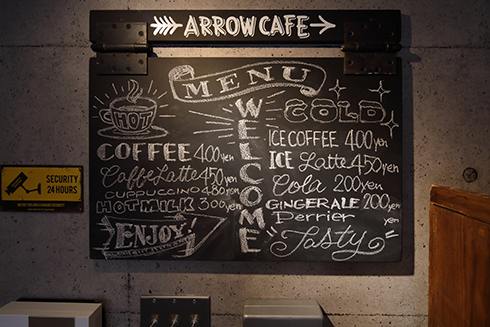 ARROW CAFE
MENU
WELCOME
HOT
COFFEE 400yen
Caffe Latte 450yen
CUPPUCCINO 480yen
HOT MILK 300yen
ENJOY!
COLD
ICE COFFEE 400yen
ICE Latte 450yen
Cola 200yen
GINGERALE 200yen
Perrier yen
Tasty
SECURITY
24 HOURS